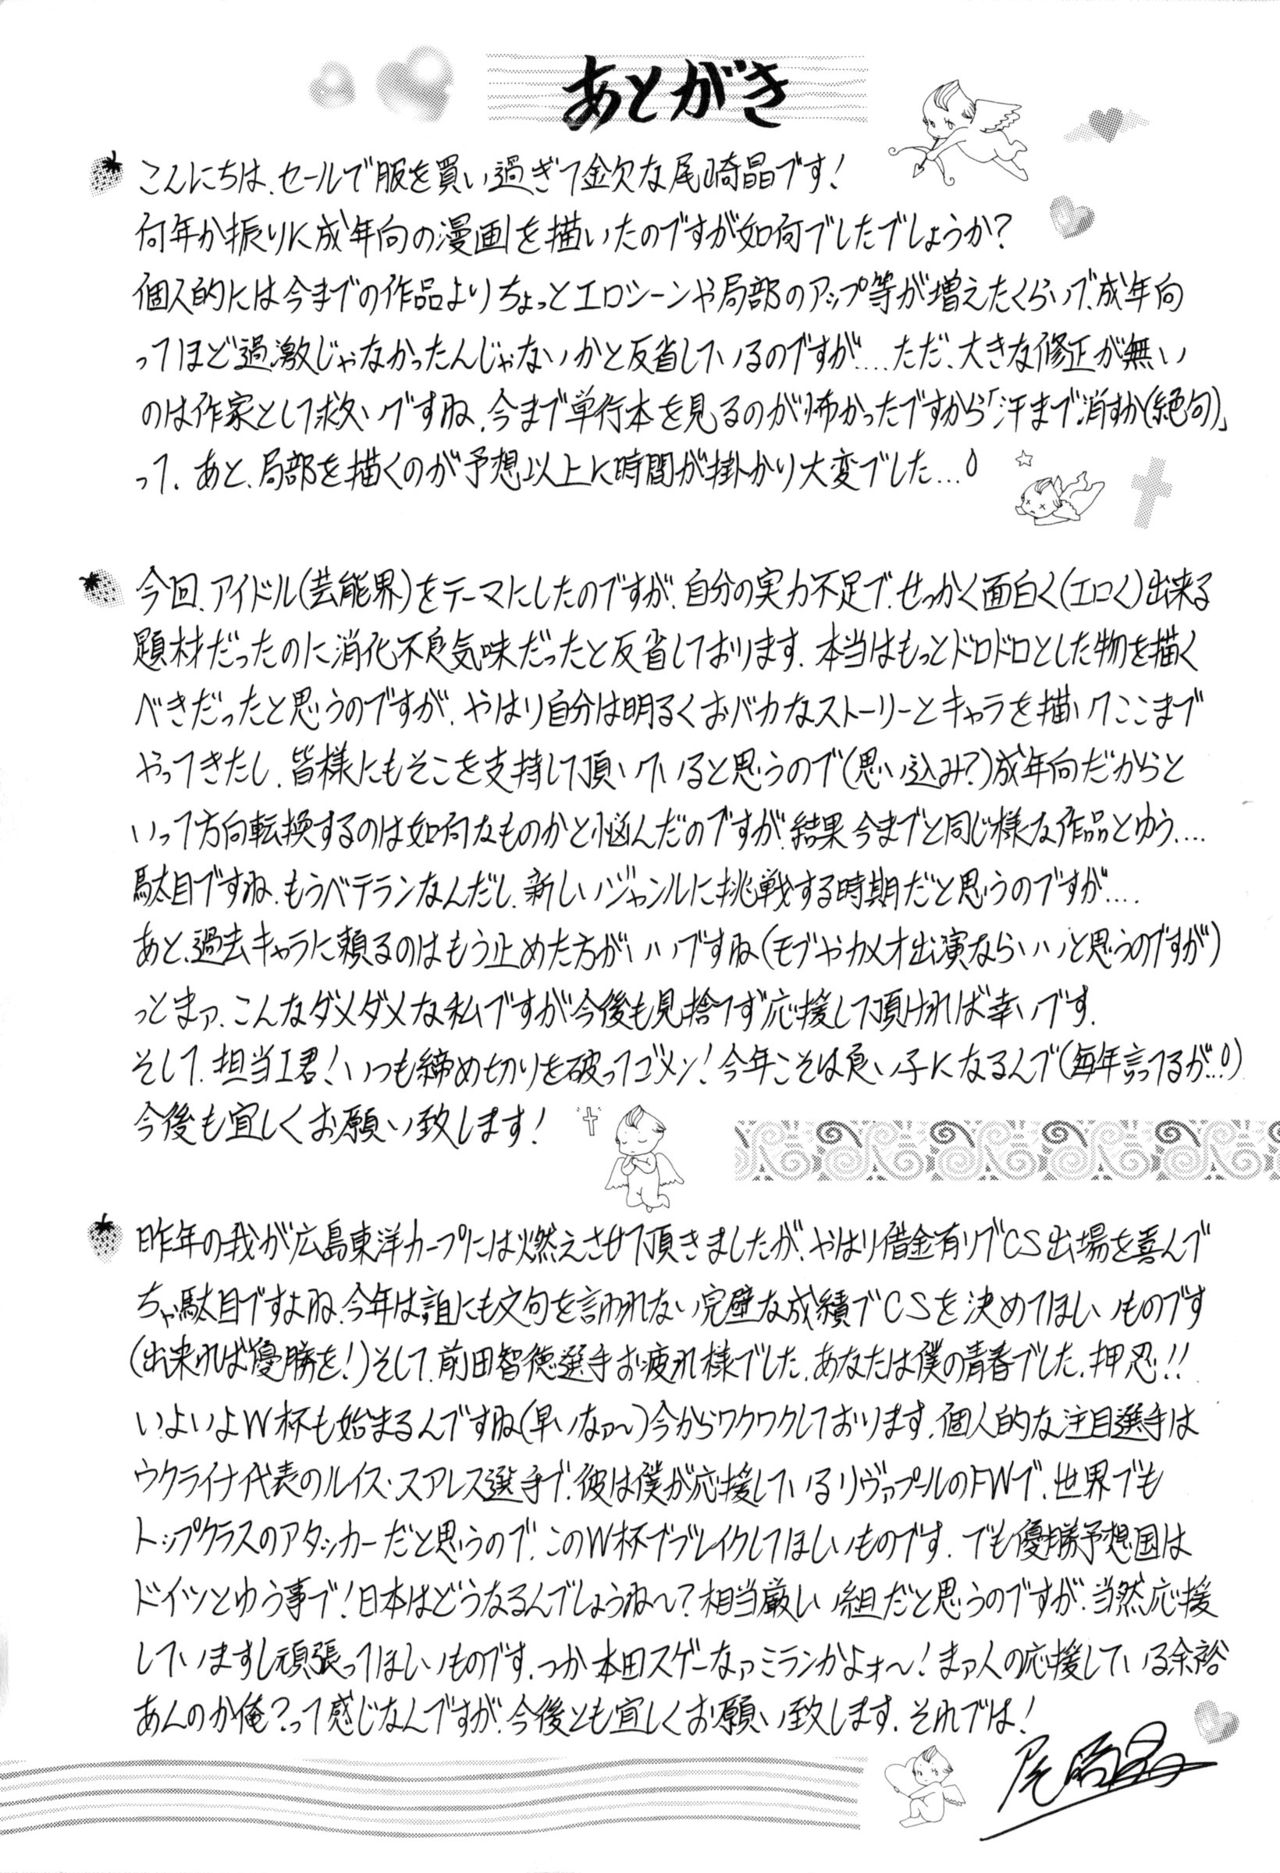 あとがき
こんにちは、セールで服を買い過ぎて金欠な尾崎晶です!
何年か振りに成年向の漫画を描いたのですが如何でしたでしょうか?
個人的には今までの作品よりちょっとエロシーンや局部のアップ等が増えたくらいで、成年向
ってほど過激じゃなかったんじゃないかと反省しているのですが....ただ、大きな修正が無い
のは作家として救いですね、今まで単行本を見るのが怖かったですから「汗まで消すか(絶句)」
って、あと、局部を描くのが予想以上に時間が掛かり大変でした...
今回、アイドル(芸能界)をテーマにしたのですが、自分の実力不足で、せっかく面白く(エロく)出来る
題材だったのに消化不良気味だったと反省しております、本当はもっとドロドロとした物を描く
べきだったと思うのですが、やはり自分は明るくおバカなストーリーとキャラを描いてここまで
やってきたし、皆様にもそこを支持して頂いていると思うので(思い込み?)成年向だからと
いって方向転換するのは如何なものかと悩んだのですが、結果今までと同じ様な作品とゆう....
駄目ですね、もうベテランなんだし、新しいジャンルに挑戦する時期だと思うのですが....
あと、過去キャラに頼るのはもう止めた方がいいですね(モブやカメオ出演ならいいと思うのですが)
っとまァ、こんなダメダメな私ですが今後も見捨てず応援して頂ければ幸いです、
そして、担当I君!いつも締め切りを破ってゴメン!今年こそは良い子になるんで(毎年言ってるが...)
今後も宜しくお願い致します!
昨年の我が広島東洋カープには燃えさせて頂きましたが、やはり借金有りでCS出場を喜んで
ちゃ駄目ですよね、今年は誰にも文句を言われない完璧な成績でCSを決めてほしいものです
(出来れば優勝を!)そして、前田智徳選手お疲れ様でした、あなたは僕の青春でした、押忍!!
いよいよW杯も始まるんですね(早いなァ〜)今からワクワクしております、個人的な注目選手は
ウクライナ代表のルイス・スアレス選手で、彼は僕が応援しているリヴァプールのFWで、世界でも
トップクラスのアタッカーだと思うので、このW杯でブレイクしてほしいものです、でも優勝予想国は
ドイツとゆう事で!日本はどうなるんでしょうね〜?相当厳しい組だと思うのですが、当然応援
していますし頑張ってほしいものです、つか本田スゲーなァミランかよォ〜!まァ人の応援している余裕
あんのか俺?って感じなんですが、今後とも宜しくお願い致します、それでは!
尾崎晶